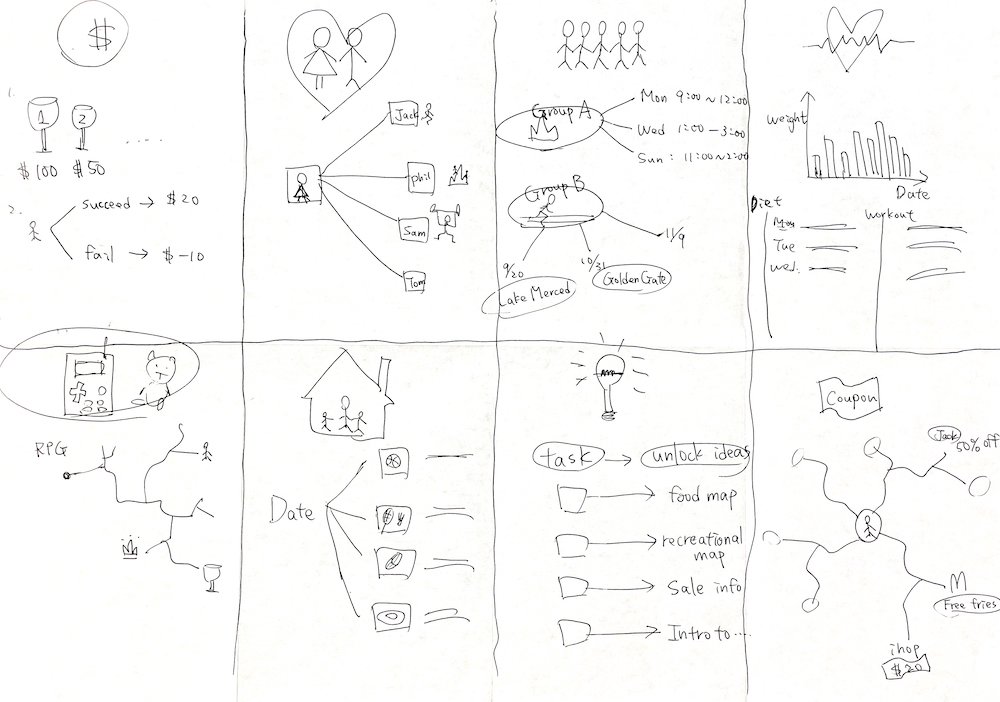 $
1.
1 2
$100 $50
.....
2.
succeed → $20
fail → $-10
Jack
phil
Sam
Tom
Group A
Mon 9:00~12:00
Wed 1:00-3:00
Sun: 11:00~2:00
Group B
9/20
Lake Merced
10/31
Golden Gate
11/9
weight
Date
Diet
Workout
Mon
Tue
wed.
RPG
Date
task → unlock ideas
food map
recreational
map
Sale info
Intro to ...
Coupon
Jack
50% off
M
Free fries
ihop
$20